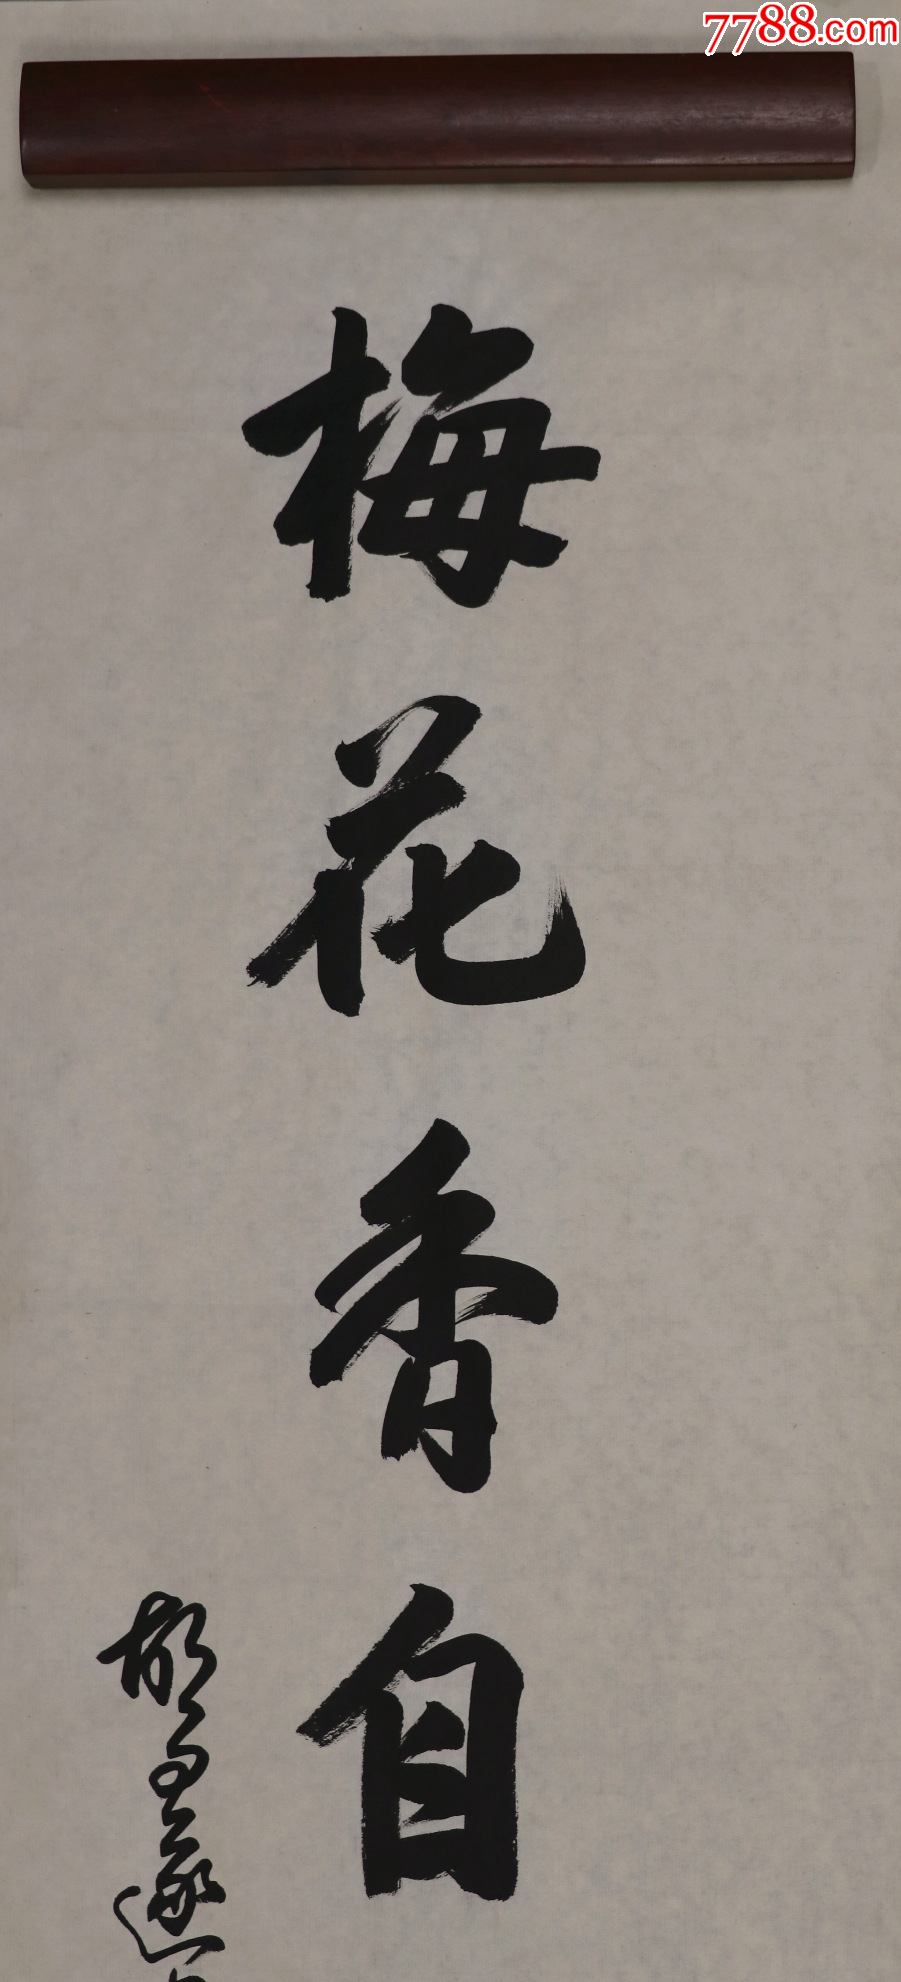 7788.com
梅花香自